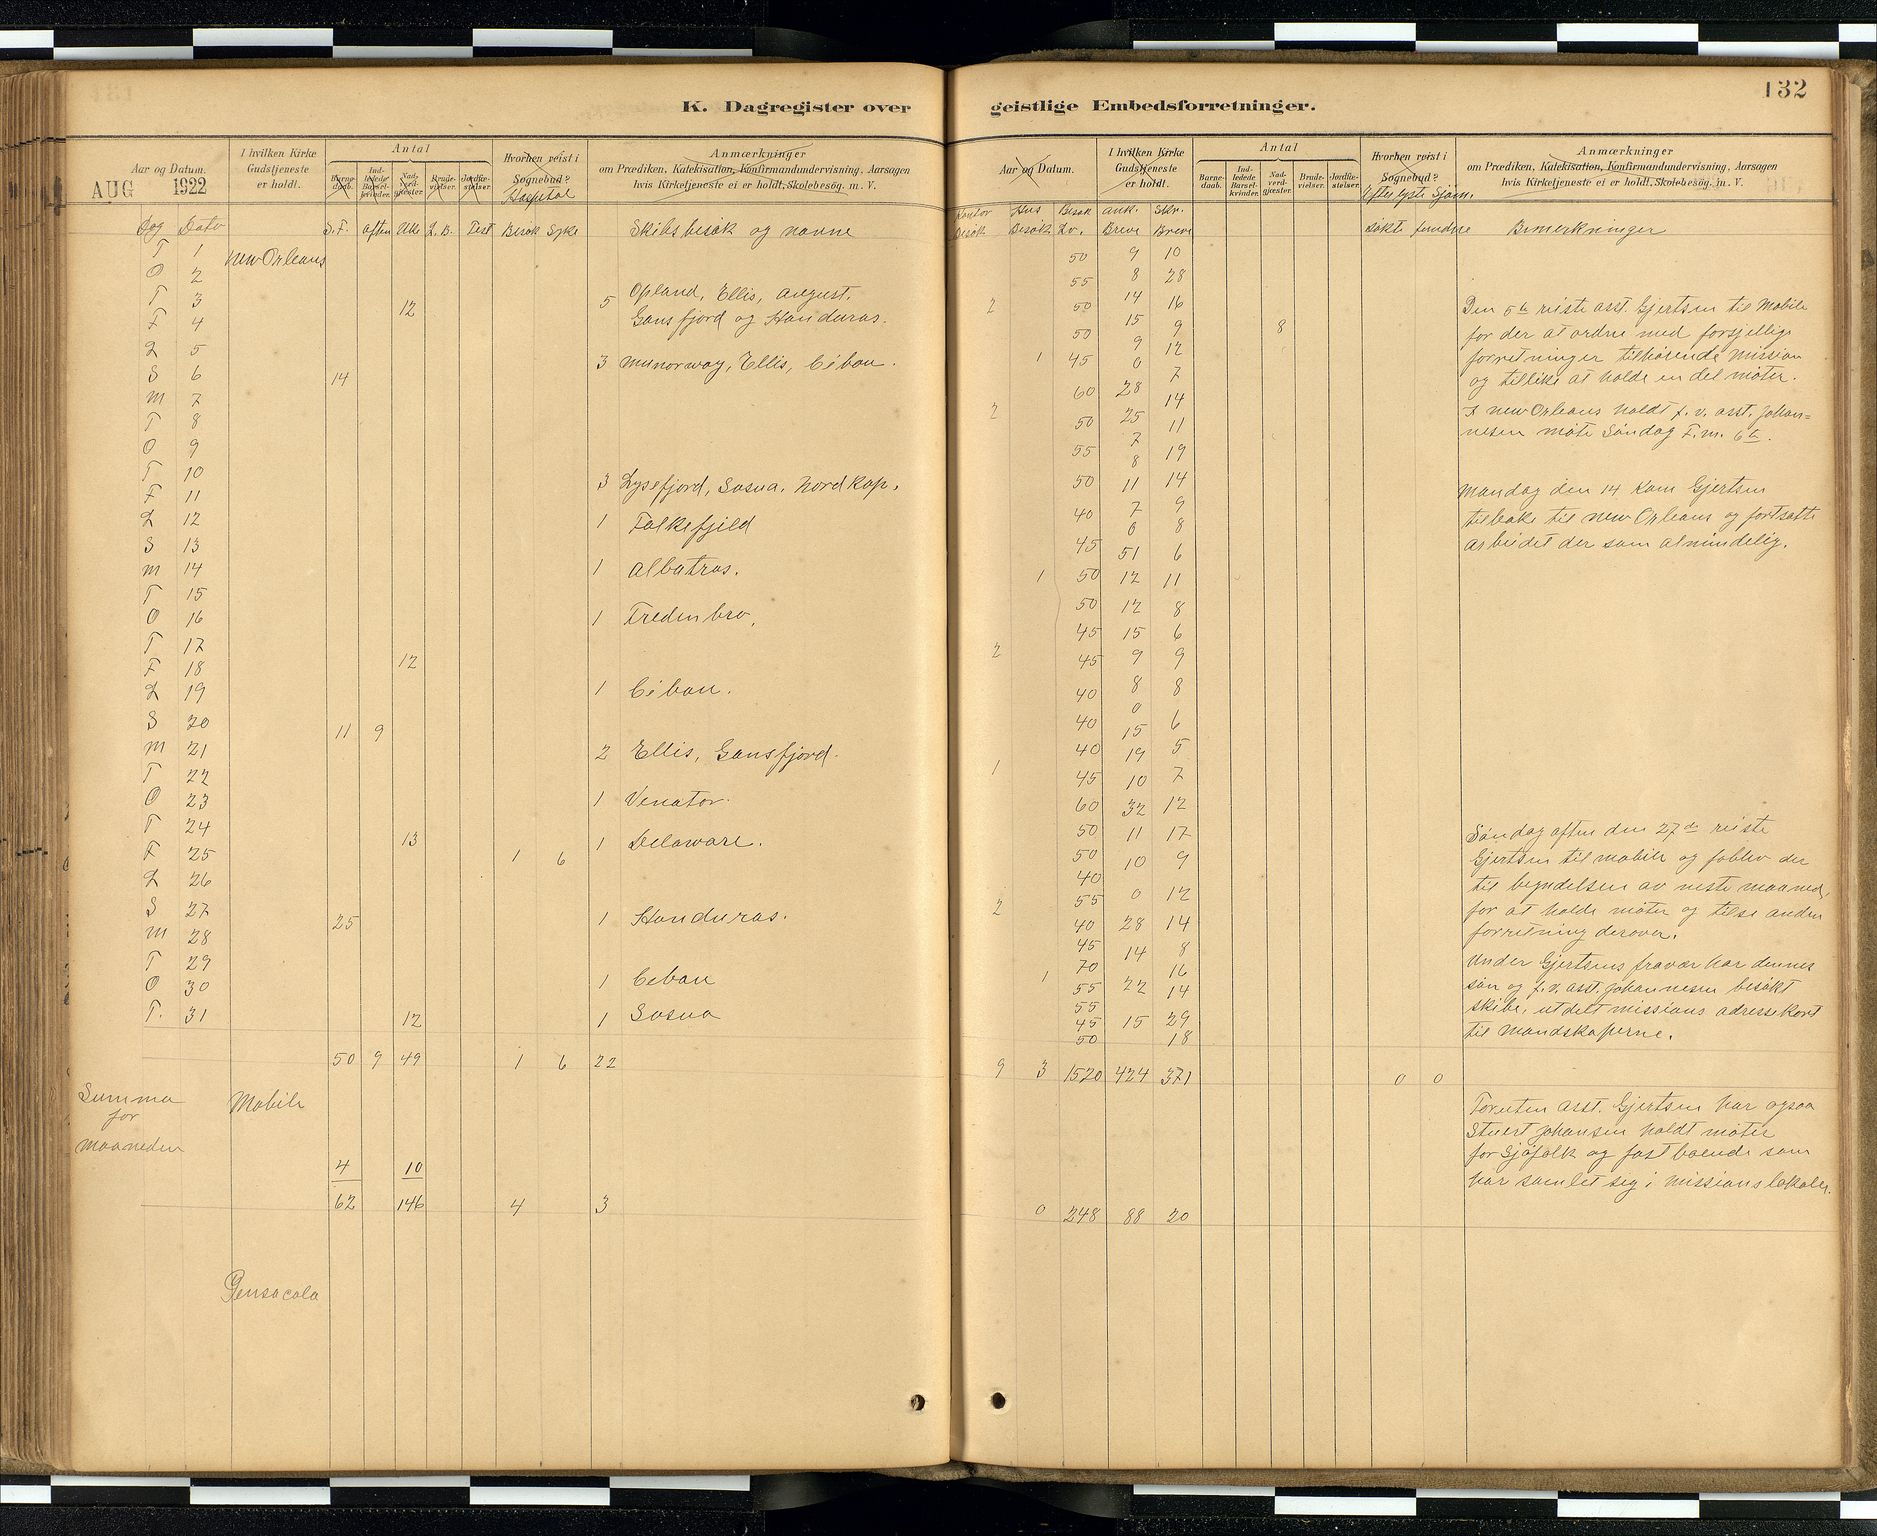 132
K. Dagregister over geistlige Embedsforretninger.
Aar og Datum.
AUG 1922
I hvilken Kirke
Gudstjeneste
er holdt.
Antal
Barne-
daab.
Ind-
ledede
Barsel-
kvinder.
Nad-
verd-
gjester.
Brude-
vielser.
Jordfæ-
stelser.
Hvorhen reist i
Sognebud?
Hospital
Anmærkninger
om Prædiken, Katekisation, Konfirmandundervisning, Aarsagen
hvis Kirketjeneste ei er holdt, Skolebesøg. m. V.
Dag Dato S. F. aften Uke L. B. Fest Besøk Syke Skibsbesøk og navne
T 1 New Orleans
O 2
T 3 12 5 Opland, Ellis, August,
F 4 Gansfjord og Honduras.
L 5 3 Munorway, Ellis, Ceban.
S 6 14
M 7
T 8
O 9
T 10 3 Lysefjord, Sosua, Nordkap.
F 11
L 12 1 Falkefjeld
S 13
M 14 1 Albatros.
T 15
O 16 1 Fredenbro,
T 17 12
F 18
L 19 1 Ceban.
S 20 11 9
M 21 2 Ellis, Gansfjord.
T 22
O 23 1 Venator.
T 24 13 1 Delaware.
F 25 1 6
L 26
S 27 25 1 Honduras.
M 28
T 29
O 30 1 Ceban
T. 31 12 1 Sosua
50 9 49 1 6 22
Summa
for
Maaneden
Mobile
4 10
62 146 4 3
Pensacola
Aar og Datum.
I hvilken Kirke
Gudstjeneste
er holdt.
Antal
Barne-
daab.
Ind-
ledede
Barsel-
kvinder.
Nad-
verd-
gjester.
Brude-
vielser.
Jordfæ-
stelser.
Hvorhen reist i
Sognebud?
Efterlyste Sjøm.
Anmærkninger
om Prædiken, Katekisation, Konfirmandundervisning, Aarsagen
hvis Kirketjeneste ei er holdt, Skolebesøg. m. V.
Kontor Hus Besøk Ank. Skr.
Besøk Besøk Lv. Breve Breve søkte fundne Bemerkninger
50 9 10
55 8 28
2 50 14 16
50 15 9 8
9 12
1 45 0
7
60 28
2 14
50 25 11
7
55 8 19
50 11 14
40 7 9
0 8
45 51 6
1 50 12 11
50 12 8
45 15 6
2 45 9 9
40 8 8
0
40 15 6
40 19 5
1 45 10 7
60 32 12
50 11 17
50 10 9
40
55 0 12
2 40 28 14
45 14 8
70 16
1 55 22 14
55
45 15 29
50 18
9 3 1520 424 371 0 0
0 248 88 20
Den 5te reiste asst. Gjertsen til Mobile
for der at ordne med forsjellige
forretninger tilhørende mission
og tillike at holde en del møter.
I New Orleans holdt f. v. asst. Johan=
nesen møte Søndag F. m. 6te.
Mandag den 14 kom Gjertsen
tilbake til New Orleans og fortsatte
arbeidet der som almindelig.
Søndag aften den 27de reiste
Gjertsen til Mobile og foblev der
til begyndelsen av neste maaned,
for at holde møter og tilse anden
forretning derover.
Under Gjertsens fravær har dennes
søn og f. v. asst. Johannesen besøkt
skibe, utdelt missions adressekort
til mandskaperne.
Foruten asst. Gjertsen har ogsaa
Stuert Johansen holdt møter
for Sjøfolk og fastboende som
har samlet sig i missionslokalen.